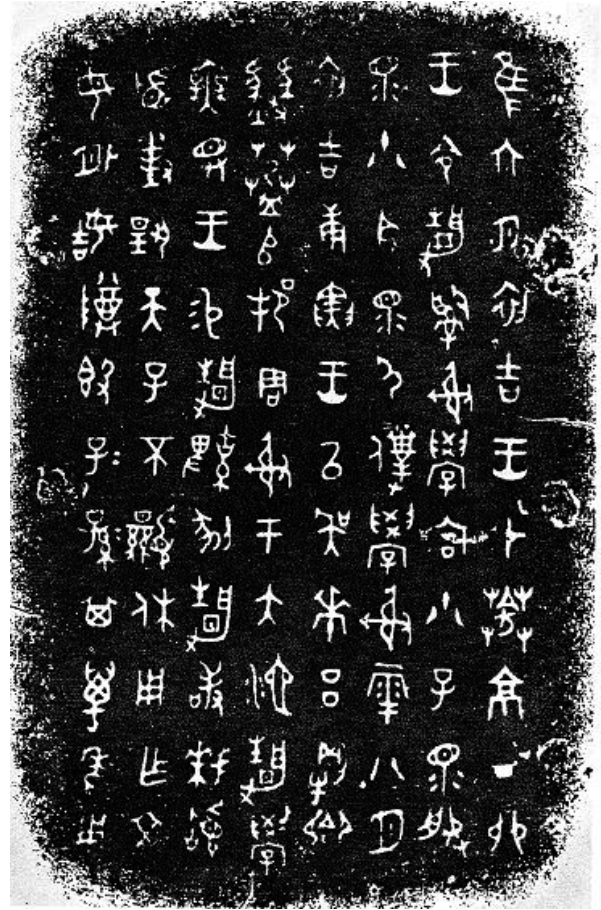 隹六月初吉王才𦯒京丁卯
王令靜𤔲射學宮小子眔服
眔小臣眔尸僕學射𩁹八月
初吉庚寅王㠯吳𠦪呂犅卿
𢿐𦬘𠂤邦周射于大池靜學
無斁王易靜鞞剢靜敢拜𩒨
首對揚天子不顯休用乍文
母外姞尊簋子=孫=其萬年用